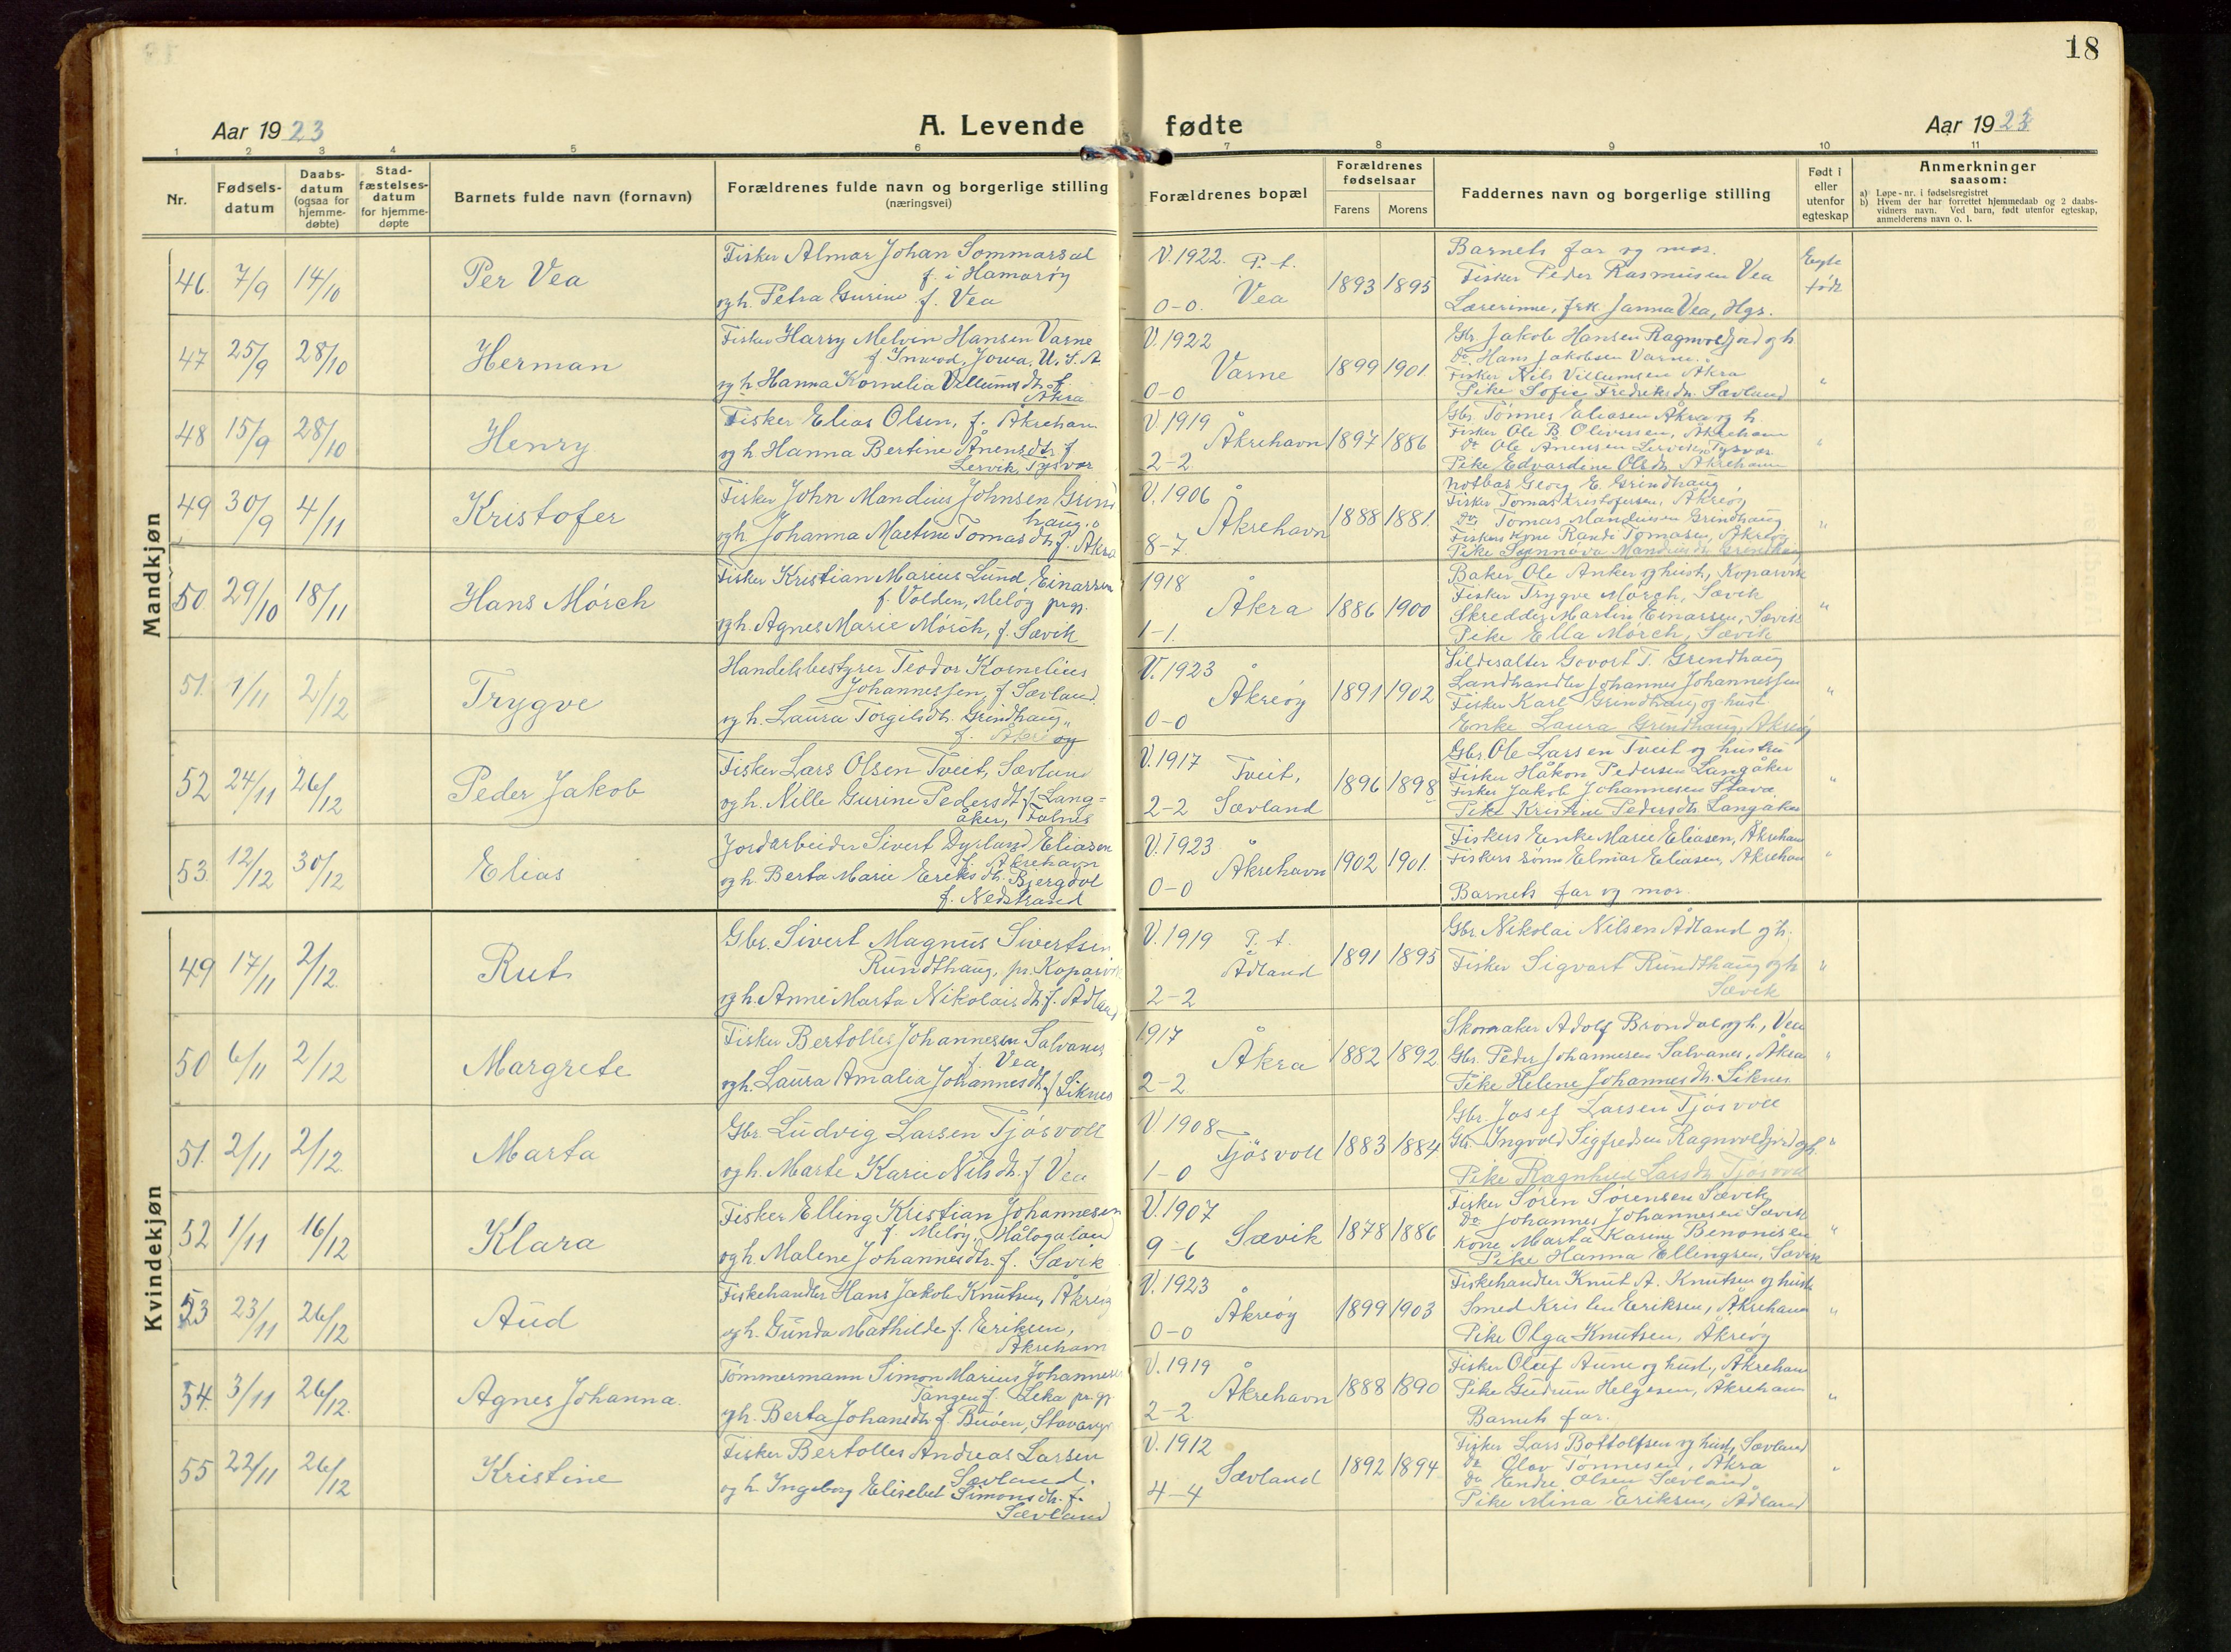 18
Aar 1923
A. Levende fødte
Aar 1923
1 2 3 4 5 6 7 8 9 10 11
Nr.
Fødsels-
datum
Daabs-
datum
(ogsaa for
hjemme-
døbte)
Stad-
fæstelses-
datum
for hjemme-
døpte
Barnets fulde navn (fornavn)
Forældrenes fulde navn og borgerlige stilling
(næringsvei)
Forældrenes bopæl
Forældrenes
fødselsaar
Farens Morens
Faddernes navn og borgerlige stilling
Født i
eller
utenfor
egteskap
Anmerkninger
saasom:
a) Løpe-nr. i fødselsregistret
b) Hvem der har forrettet hjemmedaab og 2 daabs-
vidners navn. Ved barn, født utenfor egteskap,
anmelderens navn o. l.
Mandkjøn
46. 7/9 14/10 Per Vea
Fisker Almar Johan Sommarsæl
f. i Hamarøy
og h. Petra Gurine f. Vea
V. 1922. P. t.
Vea
0-0.
1893 1895
Barnets far og mor.
Fisker Peder Rasmussen Vea
Lærerinne, frk Janna Vea, Hgs.
Egte
født
47 25/9 28/10 Herman
Fisker Harry Melvin Hansen Varne
f. Inwood, Jowa. U. S. A
og h. Hanna Kornelia Villumsdtr. f.
Åkra
V. 1922
Varne
0-0
1899 1901.
Gbr. Jakob Hansen Ragnvoldjord og h
Do. Hans Jakobsen Varne.
Fisker Nils Villumsen Åkra
Pike Sofie Fredriksdtr. Sævland
"
48 15/9 28/10 Henry
Fisker Elias Olsen, f. Åkrehavn
og h Hanna Bertine Ånensdtr. f
Lervik, Tysvær
V. 1919
Åkrehavn
2-2
1897 1886
Gbr. Tønnes Eliasen Åkra og h
Fisker Ole B. Oliversen, Åkrehavn
Do Ole Ånensen Lerviken, Tysvær
Pike Edvardine Olsdtr. Åkrehavn
"
49 30/9 4/11 Kristofer
Fisker John Mandius Johnsen Grind
haug.
og h Johanna Martine Tomasdtr. f. Åkra
V. 1906
Åkrehavn
8-7.
1888 1881.
Notbas Georg E. Grindhaug
Fisker Tomas Kristofersen, Åkreøy
Do, Tomas Mandiusen Grindhaug
Fiskers kone Randi Tomasen, Åkreøy
Pike Synnøva Mandiusdtr. Grindhaug
"
50 29/10 18/11 Hans Mörch
Fisker Kristian Marius Lund Einarsen
f. Volden, Meløy prgj.
og h. Agnes Marie Mörch, f. Sævik
1918
Åkra
1-1.
1886 1900
Baker Ole Anker og hust, Kopervik
Fisker Trygve Mörch, Sævik
Skredder Martin Einarsen, Sævik
Pike Ella Mörch, Sævik
"
51. 1/11 2/12 Trygve
Handelsbestyrer Teodor Kornelius
Johannessen, f. Sævland
og h. Laura Torgilsdtr. Grindhaug
f. Åkreøy
V. 1923
Åkreøy
0-0
1891 1902
Sildesalter Govort T. Grindhaug
Landhandler Johannes Johannessen
Fisker Karl Grindhaug og hust.
Enke Laura Grindhaug, Åkreøy
"
52 24/11 26/12 Peder Jakob
Fisker Lars Olsen Tveit, Sævland
og h. Nille Gurine Pedersdtr. f. Lang=
åker, Falnes
V. 1917
Tveit,
2-2 Sævland
1896 1898
Gbr. Ole Larsen Tveit og hustru
Fisker Håkon Pedersen Langåker
Fisker Jakob Johannesen Stava
Pike Kristine Pedersdtr. Langåker
"
53. 12/12 30/12 Elias
Jordarbeider Sivert Dyrland Eliasen
f. Åkrehavn
og h. Berta Marie Eriksdtr. Bjergdal
f. Nedstrand
V. 1923
Åkrehavn
0-0
1902 1901.
Fiskers Enke Marie Eliasen, Åkrehavn
Fiskers sønn Elmar Eliasen, Åkrehavn
Barnets far og mor.
"
Kvindekjøn
49 17/11 2/12. Rut
Gbr. Sivert Magnus Sivertsen
Rundthaug, pr. Kopervik
og h. Anne Marta Nikolaisdtr. f. Ådland
V. 1919 P. t.
Ådland
2-2
1891 1895
Gbr. Nikolai Nilsen Ådland og h.
Fisker Sigvart Rundthaug og h
Sævik
"
50 6/11 2/12 Margrete
Fisker Bertolles Johannesen Salvanes
f. Vea
og h. Laura Amalia Johannesdtr. f. Liknes
1917
Åkra
2-2
1882 1892
Skomaker Adolf Brøndal og h, Vea
Gbr. Peder Johannesen Salvanes, Åkra
Pike Helene Johannesdtr. Liknes
"
51. 2/11 2/12. Marta
Gbr. Ludvig Larsen Tjösvoll
og h. Marte Karie Nilsdtr. f Vea
V. 1908
Tjösvoll
1-0
1883 1884
Gbr. Josef Larsen Tjösvoll
Gbr. Ingvold Sigfredsen Ragnvoldjord og h.
Pike Ragnhild Larsdtr. Tjösvoll
"
52 1/11 16/12 Klara
Fisker Elling Kristian Johannesen
f. Meløy, Hålogaland
og h. Malene Johannesdtr. f. Sævik
V. 1907
Sævik
9-6
1878 1886
Fisker Sören Sörensen Sævik
Do Johannes Johannesen Sævik
Kone Marta Karine Benonisen
Pike Hanna Ellingsen, Sævik
"
53 23/11 26/12 Aud
Fiskehandler Hans Jakob Knutsen, Åkreøy
og h. Gunda Mathilde f. Eriksen,
Åkrehavn
V. 1923
Åkreøy
0-0
1899 1903
Fiskehandler Knut A. Knutsen og hustr
Smed Kristen Eriksen, Åkrehavn
Pike Olga Knutsen, Åkreøy
"
54. 3/11 26/12. Agnes Johanna.
Tömmermann Simon Marius Johannesen
Tangen f. Leka pr.gj.
og h. Berta Johansdtr. f. Buöen, Stavanger
V. 1919
Åkrehavn
2-2
1888 1890
Fisker Oluf Aune og hust., Åkrehavn
Pike Gudrun Helgesen, Åkrehavn
Barnets far.
"
55 22/11 26/12 Kristine
Fisker Bertolles Andreas Larsen
Sævland.
og h Ingeborg Elisebet Simonsdtr. f.
Sævland
V. 1912
Sævland
4-4
1892 1894
Fisker Lars Bottolfsen og hust, Sævland
Do Olav Tønnesen, Åkra
Do Endre Olsen Sævland
Pike Mina Eriksen, Ådland
"